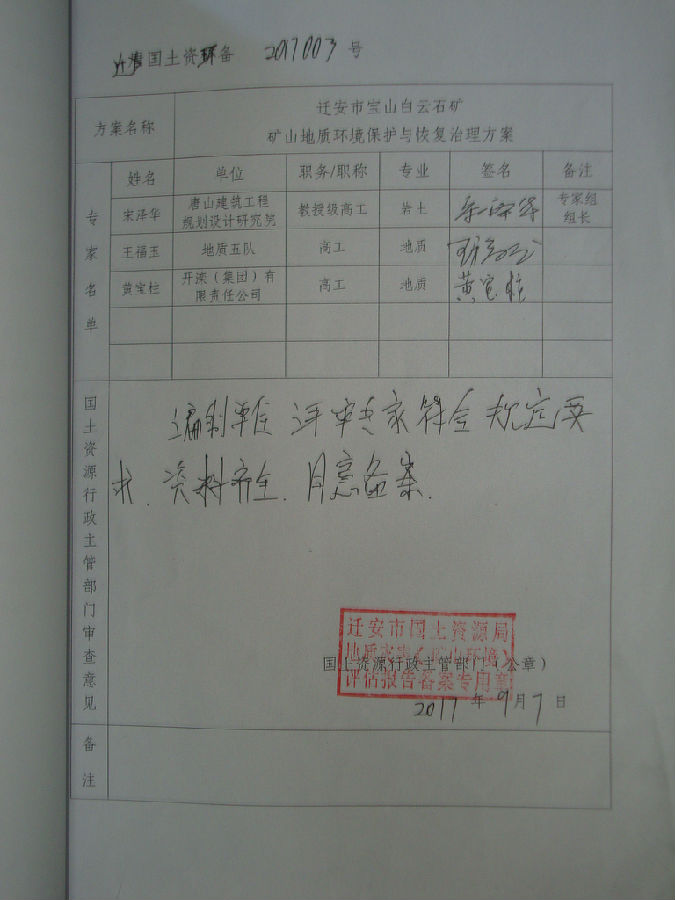 迁 国土资环备 2017003 号
方案名称 迁安市宝山白云石矿
矿山地质环境保护与恢复治理方案
专家名单 姓名 单位 职务/职称 专业 签名 备注
宋泽华 唐山建筑工程规划设计研究院 教授级高工 岩土 专家组组长
王福玉 地质五队 高工 地质
黄宝柱 开滦（集团）有限责任公司 高工 地质 黄宝柱
国土资源行政主管部门审查意见
编制单位 评审专家符合规定要
求、资料齐全、同意备案.
迁安市国土资源局
地质灾害（矿山环境）
评估报告备案专用章
国土资源行政主管部门（公章）
2017 年 9 月 7 日
备注